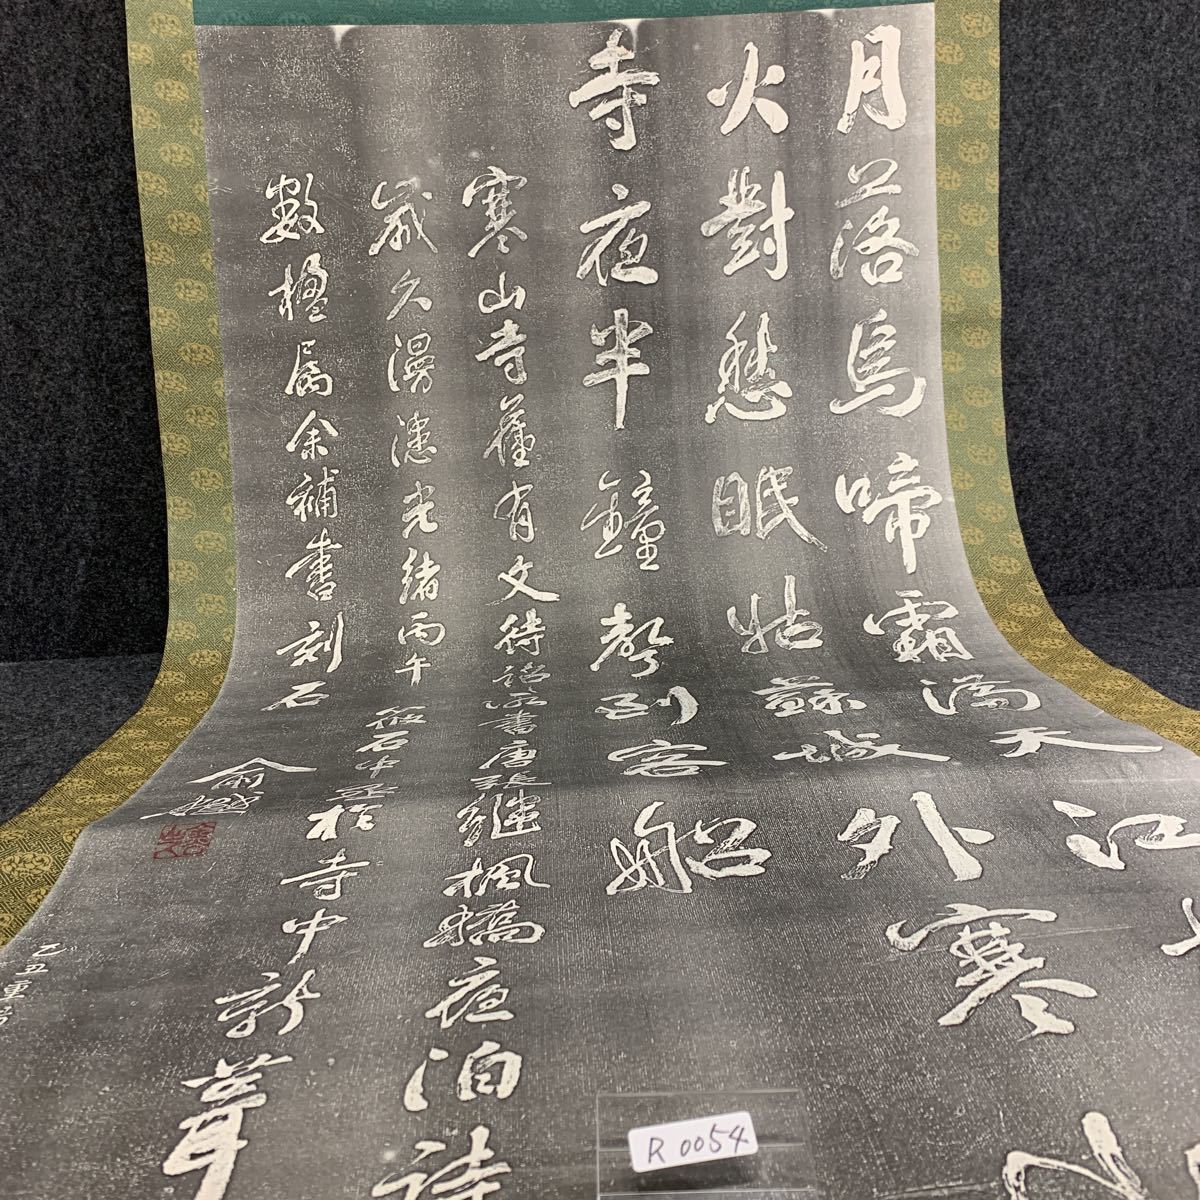 月落烏啼霜滿天江
火對愁眠姑蘇城外寒山
寺夜半鐘聲到客船
寒山寺舊有文待詔所書唐張繼楓橋夜泊詩
歲久漫漶光緒丙午筱石中丞於寺中新葺
數楹屬余補書刻石
俞樾
乙丑重
R 0054